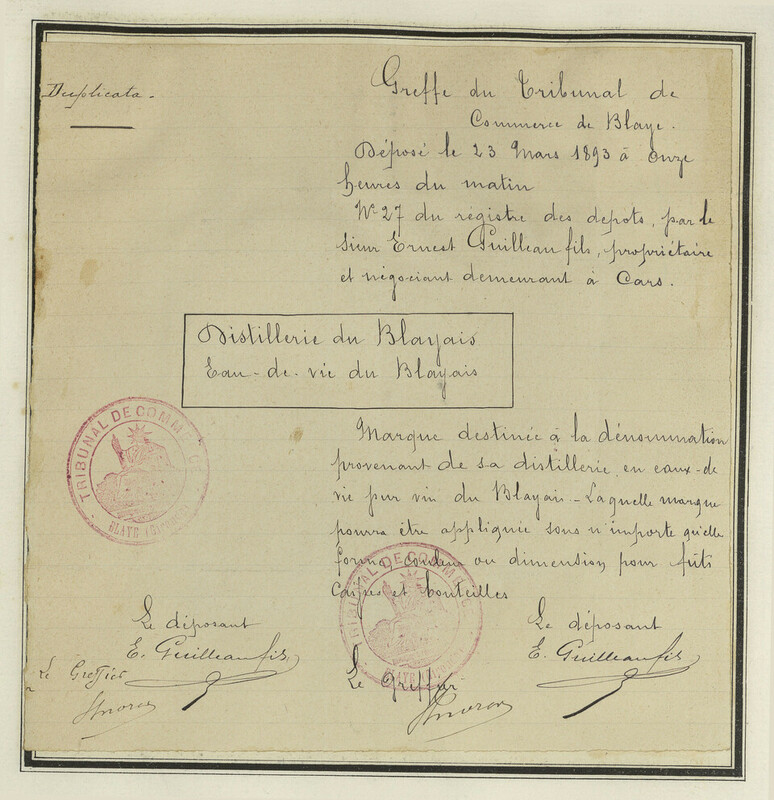 Duplicata.
Greffe du Tribunal de
Commerce de Blaye.
Déposé le 23 Mars 1893 à onze
heures du matin
N° 27 du régistre des depots, par le
sieur Ernest Guilleau fils, propriétaire
et négociant demeurant à Cars.
Distillerie du Blayais
Eau-de-vie du Blayais
Marque destinée à la dénommation
provenant de sa distillerie en eaux-de
vie pur vin du Blayais - Laquelle marque
pourra être appliquée sous n'importe qu'elle
forme, couleur ou dimension pour futs
caisses et bouteilles
TRIBUNAL DE COMMERCE
BLAYE (GIRONDE)
TRIBUNAL DE COMMERCE
BLAYE (GIRONDE)
Le déposant
E. Guilleau fils
Le Greffier
Le déposant
E. Guilleau fils
Le Greffier